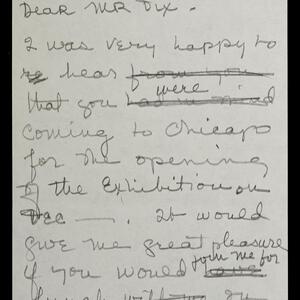 Dear Mr Dix.
I was very happy to
re hear from you
were
that you had in mind
coming to Chicago
for the opening
of the Exhibition on
Dec —. It would
give me great pleasure
join me for
if you would have
lunch with